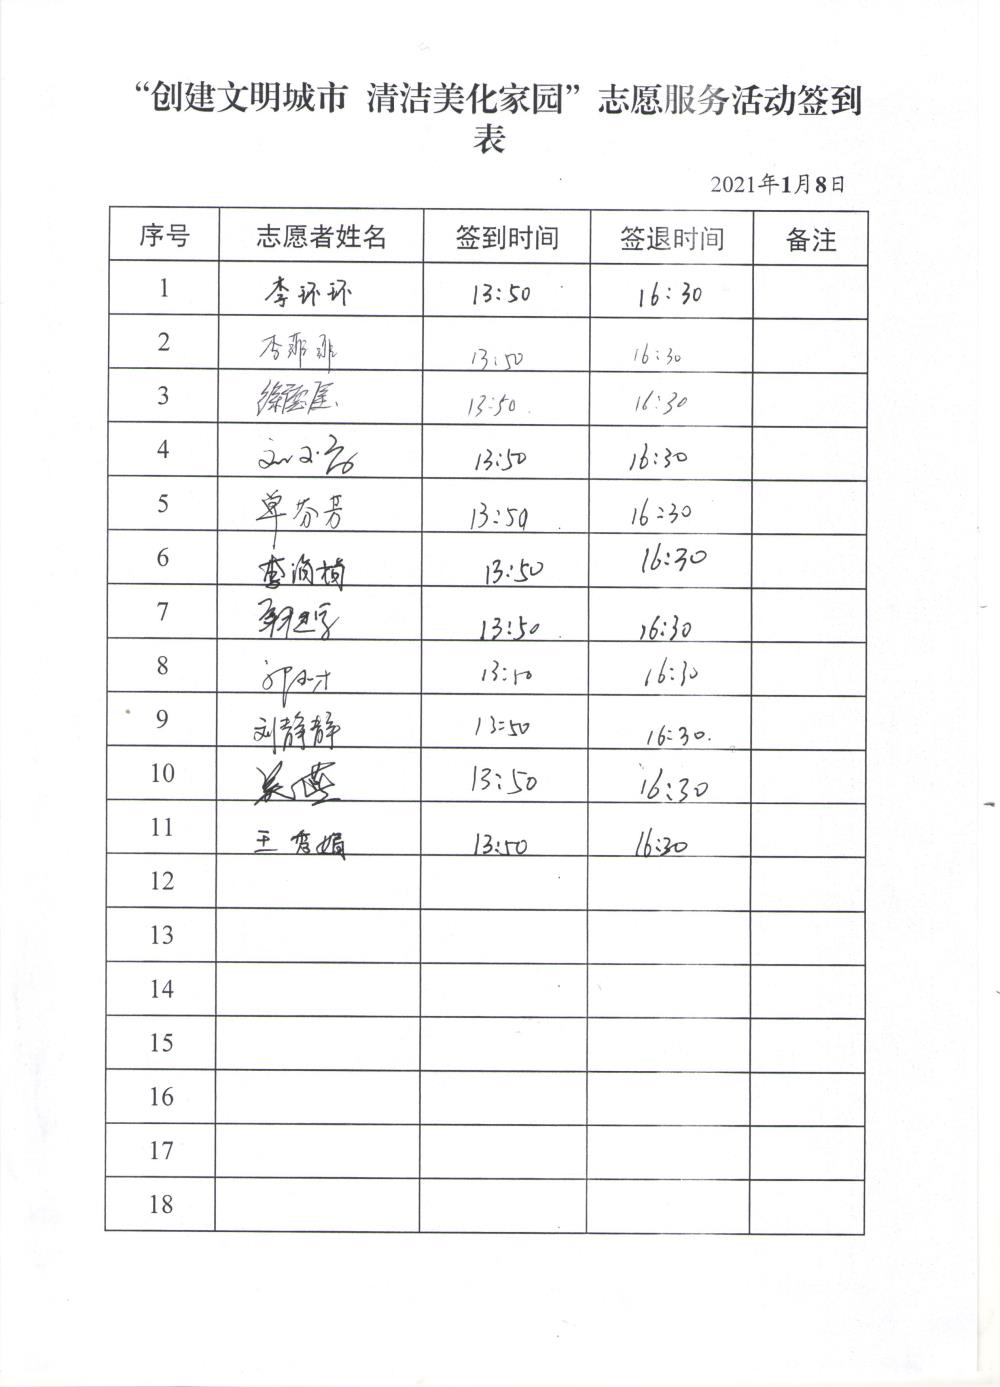 “创建文明城市 清洁美化家园”志愿服务活动签到
表
2021年1月8日
序号 志愿者姓名 签到时间 签退时间 备注
1 李环环 13:50 16:30
2 李 13:50 16:30
3 徐 13:50 16:30
4 刘文 13:50 16:30
5 单芬芳 13:50 16:30
6 李 13:50 16:30
7 13:50 16:30
8 13:50 16:30
9 刘静静 13:50 16:30.
10 吴燕 13:50 16:30
11 王秀娟 13:50 16:30
12
13
14
15
16
17
18